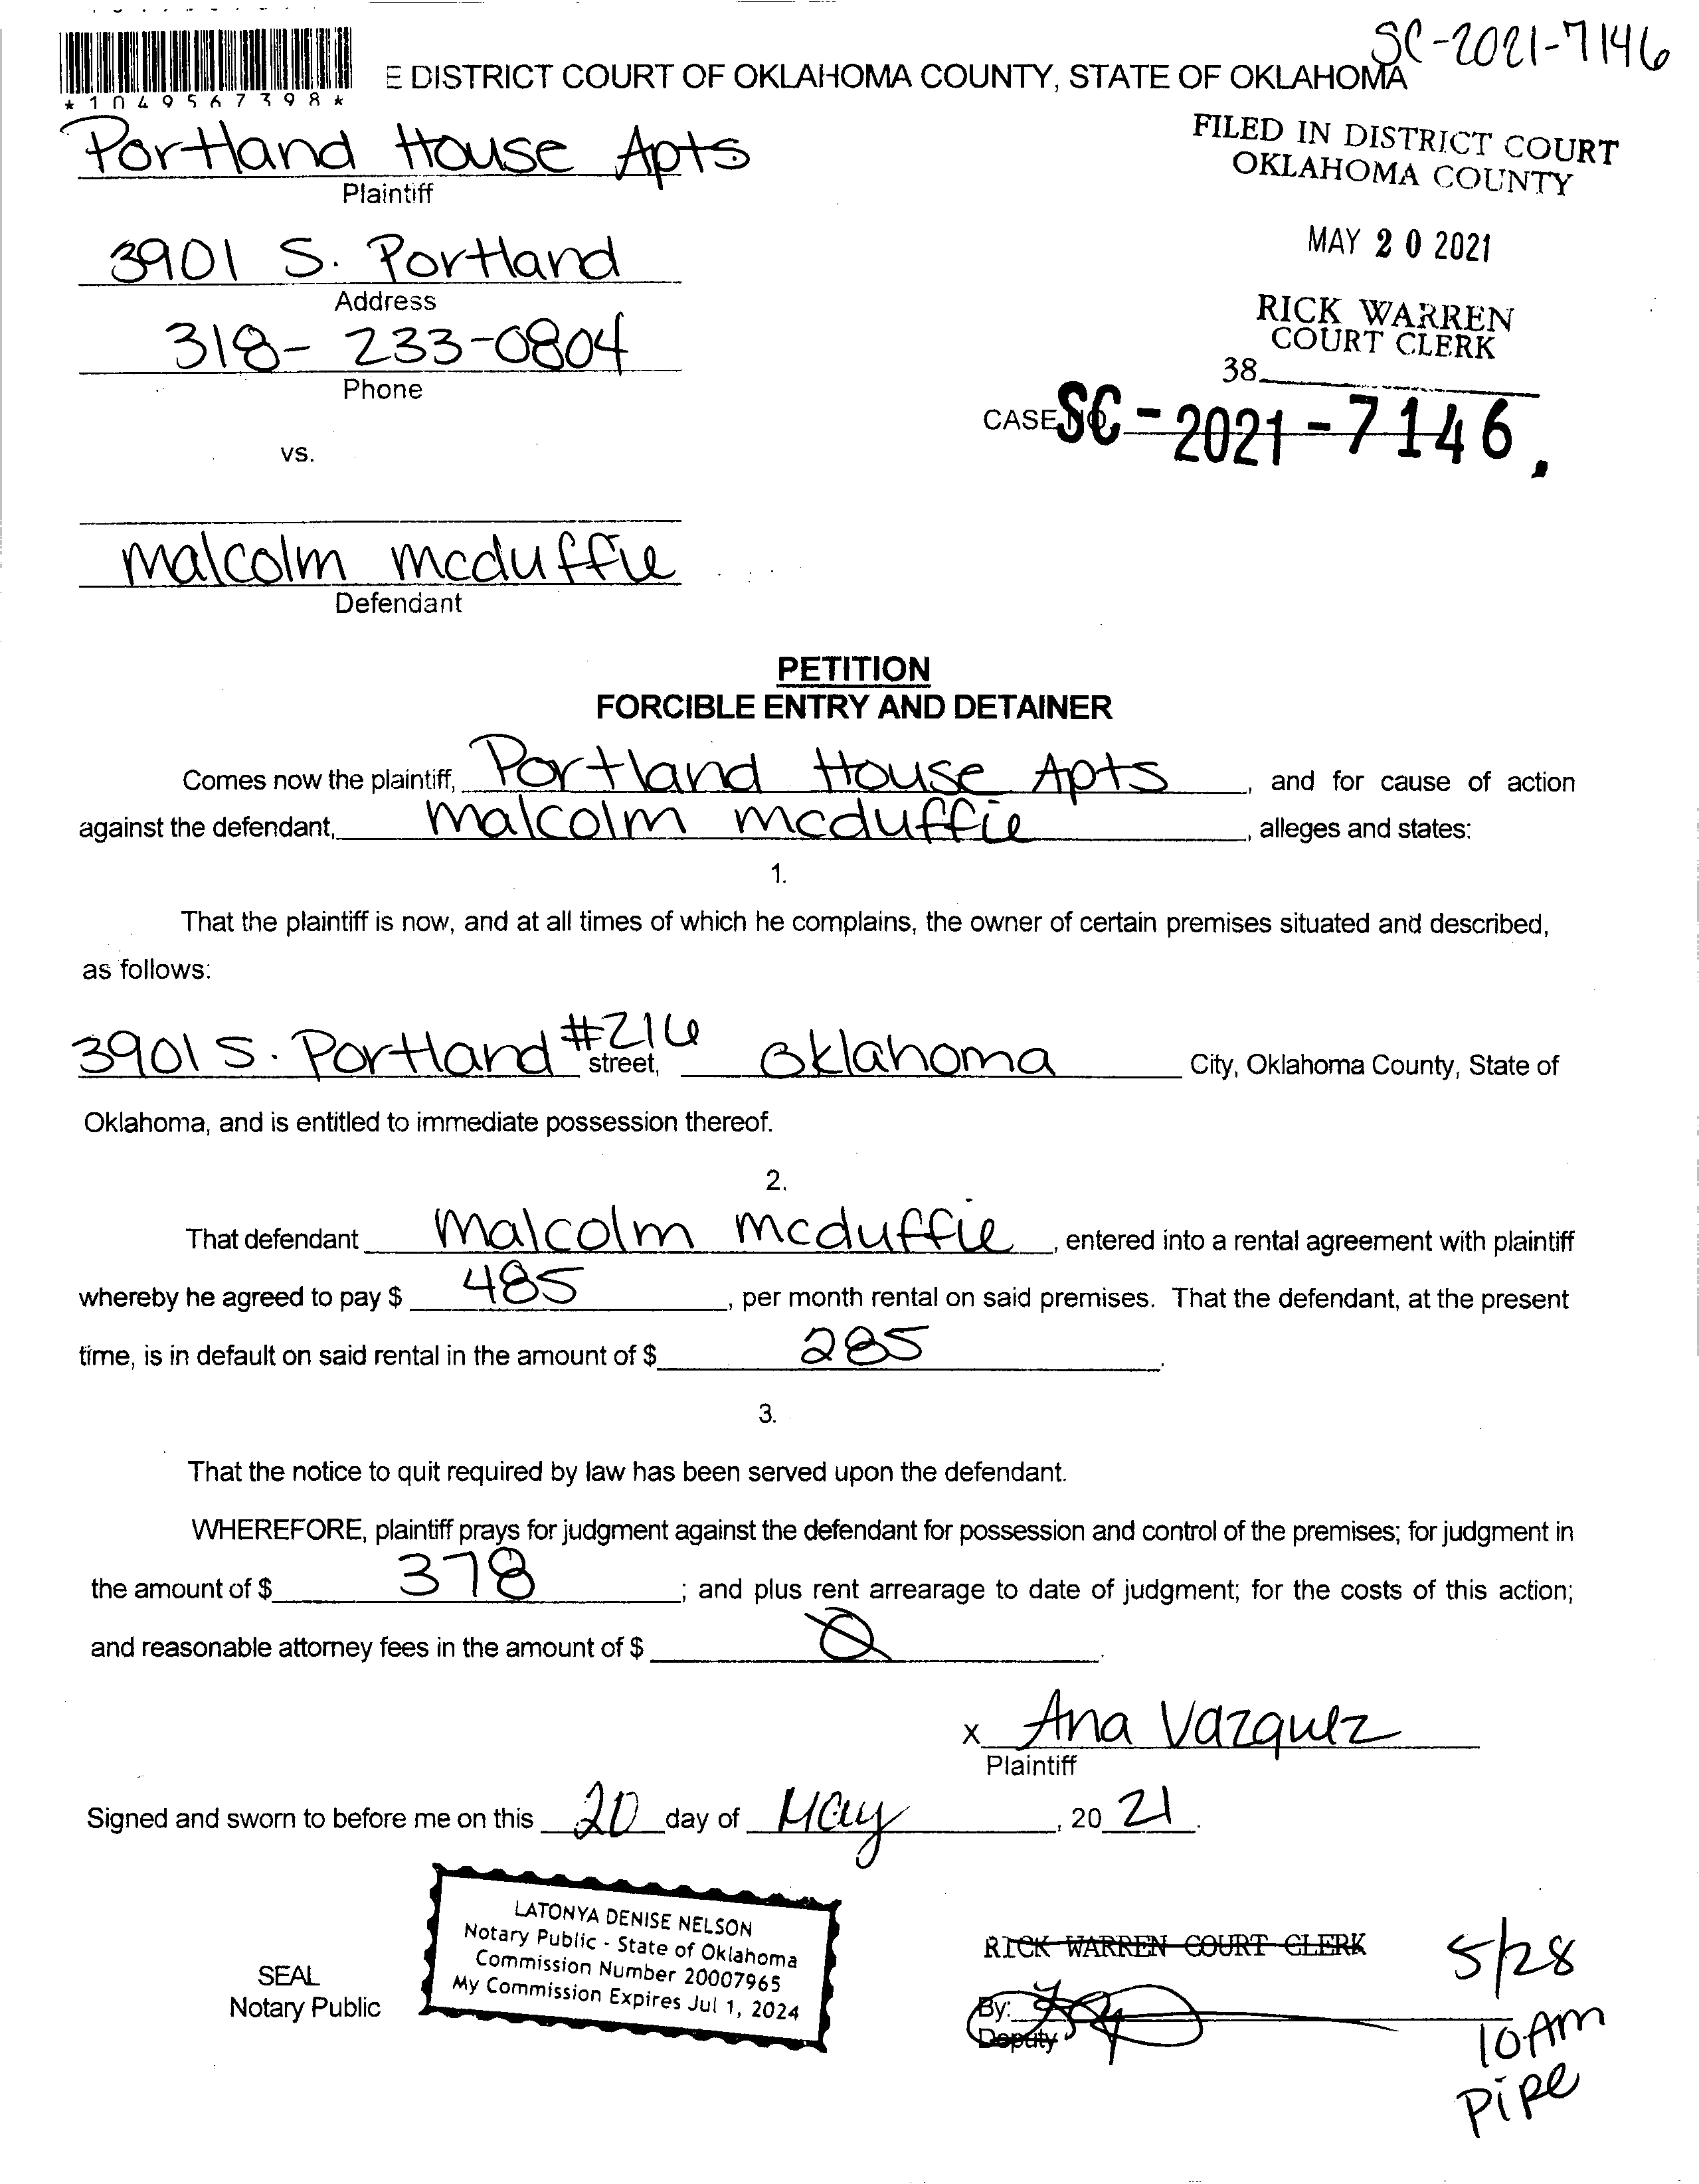 SC-2021-7146
E DISTRICT COURT OF OKLAHOMA COUNTY, STATE OF OKLAHOMA
*1049567398*
Portland House Apts
Plaintiff
FILED IN DISTRICT COURT
OKLAHOMA COUNTY
MAY 20 2021
RICK WARREN
COURT CLERK
38
3901 S. Portland
Address
318-233-0804
Phone
CASE NO. SC-2021-7146.
vs.
Malcolm mcduffie
Defendant
PETITION
FORCIBLE ENTRY AND DETAINER
Comes now the plaintiff, Portland House Apts, and for cause of action
against the defendant, Malcolm mcduffie, alleges and states:
1.
That the plaintiff is now, and at all times of which he complains, the owner of certain premises situated and described,
as follows:
3901 S. Portland #216 street, Oklahoma City, Oklahoma County, State of
Oklahoma, and is entitled to immediate possession thereof.
2.
That defendant Malcolm mcduffie, entered into a rental agreement with plaintiff
whereby he agreed to pay $ 485, per month rental on said premises. That the defendant, at the present
time, is in default on said rental in the amount of $ 285.
3.
That the notice to quit required by law has been served upon the defendant.
WHEREFORE, plaintiff prays for judgment against the defendant for possession and control of the premises; for judgment in
the amount of $ 378; and plus rent arrearage to date of judgment; for the costs of this action;
and reasonable attorney fees in the amount of $ 0.
X Ana Vazquez
Plaintiff
Signed and sworn to before me on this 20 day of May, 2021.
LATONYA DENISE NELSON
Notary Public - State of Oklahoma
Commission Number 20007965
My Commission Expires Jul 1, 2024
SEAL
Notary Public
RICK WARREN COURT CLERK
By:
Deputy
5/28
10 Am
Pipe